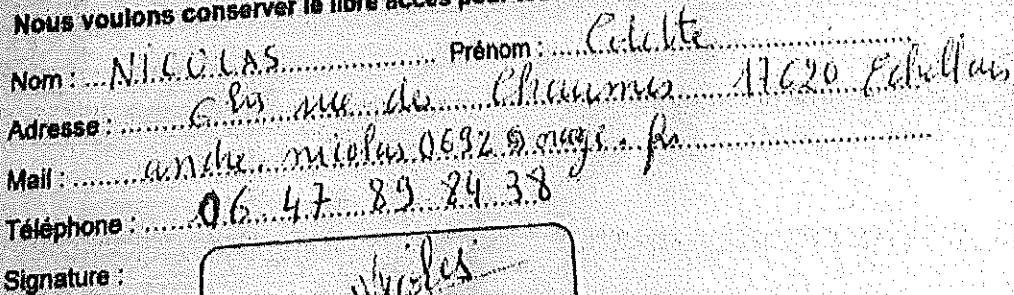 Nous voulons conserver le libre accès pour
Nom : NICOLAS Prénom : Colette
Adresse : 6 bis rue des Chaumes 17620 Echillais
Mail : andre.nicolas0692@orange.fr
Téléphone : 06 47 89 84 38
Signature :
Nicolas